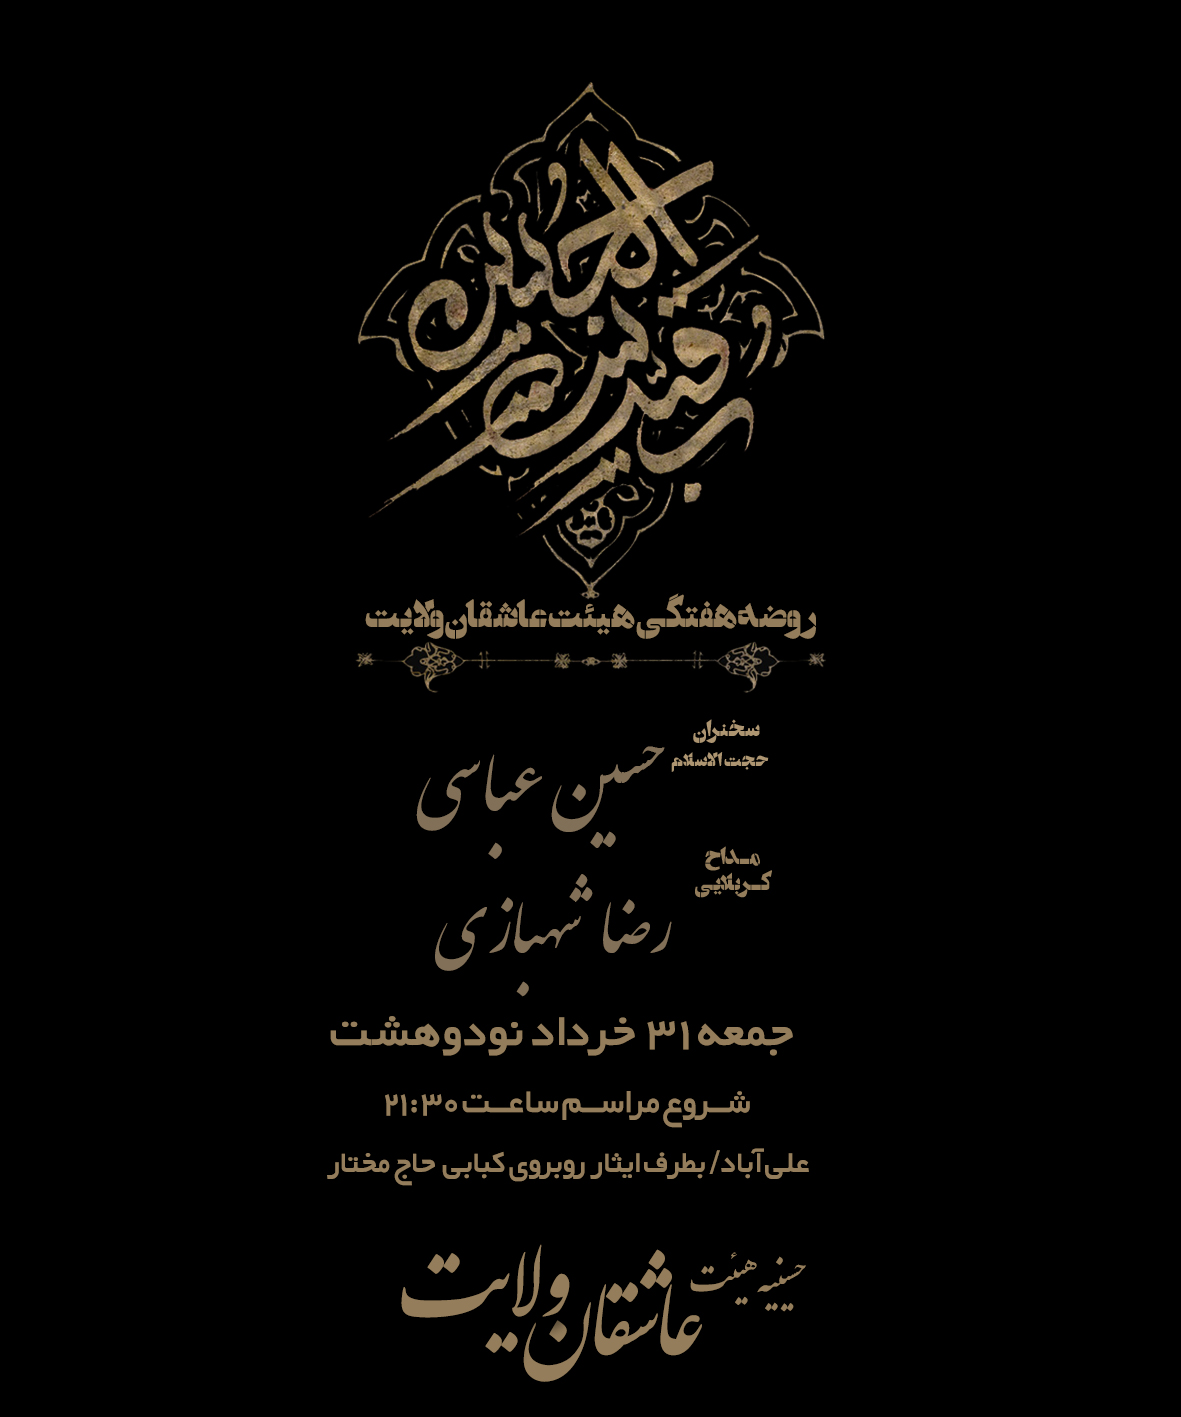 رقیه بنت الحسین
روضه هفتگی هیئت عاشقان ولایت
سخنران
حجت الاسلام
حسین عباسی
مداح
کربلایی
رضا شهبازی
جمعه ۳۱ خرداد نودوهشت
شروع مراسم ساعت ۲۱:۳۰
علی‌آباد/ بطرف ایثار روبروی کبابی حاج مختار
حسینیه هیئت
عاشقان ولایت